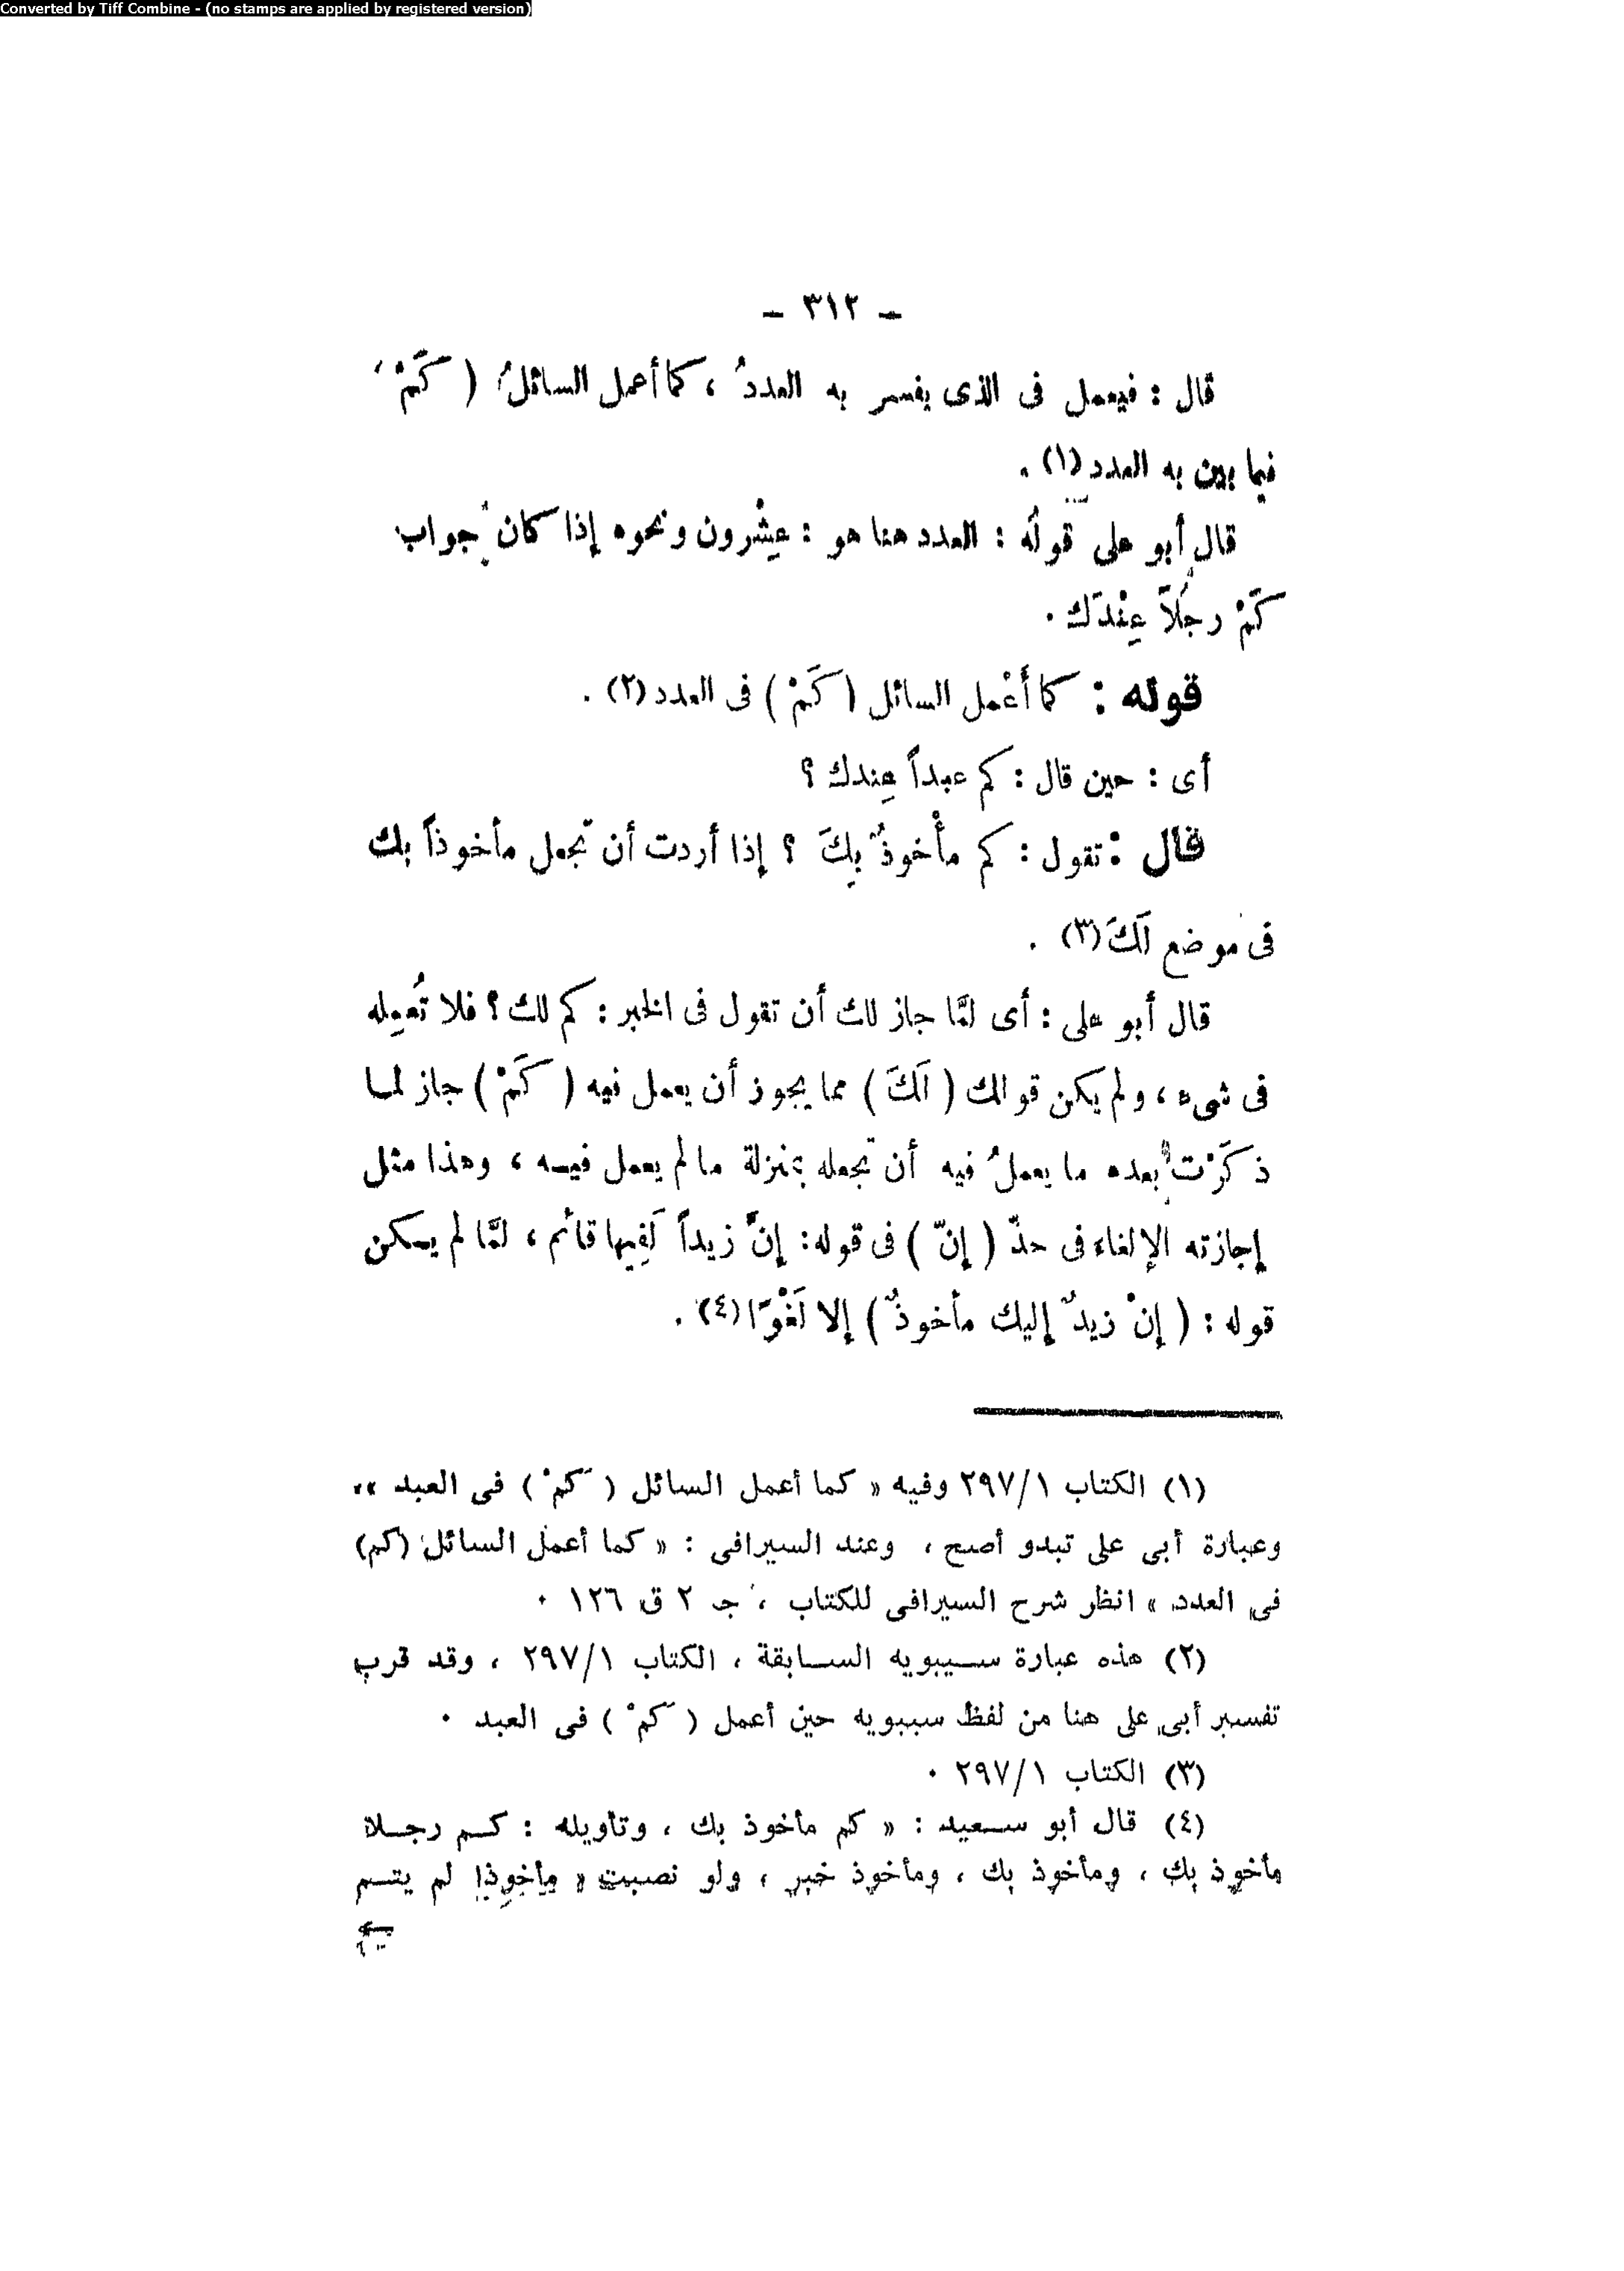 Converted by Tiff Combine - (no stamps are applied by registered version)
– ٣١٢ –
قال : فيعمل فى الذى يفسر به العددُ ، كما أعمل السائلُ ( كَمْ )
فيما يبين به العدد (١) .
قال أبو على قولُه : العدد هنا هو : عِشْرون ونحوه إذا كان جواب
كَمْ رجُلاً عِنْدَك .
قوله : كما أَعْمل السائل ( كَمْ ) فى العدد (٢) .
أى : حين قال : كم عبداً عِندك ؟
قال : تقول : كم مأْخوذٌ بِكَ ؟ إذا أردت أن تجعل مأخوذاً بك
فى موضع لَكَ (٣) .
قال أبو على : أى لمَّا جاز لك أن تقول فى الخبر : كم لك ؟ فلا تُعمِله
فى شىء ، ولم يكن قولك ( لَكَ ) مما يجوز أن يعمل فيه ( كَمْ ) جاز لمـا
ذكَرْت بعده ما يعملُ فيه أن تجعله بمنزلة ما لم يعمل فيـه ، وهذا مثل
إجازته الإلغاء فى حدّ ( إنّ ) فى قوله : إنَّ زيداً لَفِيها قائم ، لمَّا لم يـكن
قوله : ( إنْ زيدٌ إليك مأخوذٌ ) إلا لَغْوًا (٤) .
(١) الكتاب ٢٩٧/١ وفيه « كما أعمل السائل ( كَمْ ) فى العبد » ،
وعبارة أبى على تبدو أصح ، وعند السيرافى : « كما أعمل السائل (كم)
فى العدد » انظر شرح السيرافى للكتاب ، جـ ٢ ق ١٢٦ .
(٢) هذه عبارة سـيبويه السـابقة ، الكتاب ٢٩٧/١ ، وقد قرب
تفسير أبى على هنا من لفظ سيبويه حين أعمل ( كَمْ ) فى العبد .
(٣) الكتاب ٢٩٧/١ .
(٤) قال أبو سـعيد : « كم مأخوذ بك ، وتأويله : كـم رجـلا
مأخوذ بك ، ومأخوذ بك ، ومأخوذ خبر ، ولو نصبت « مأخوذا لم يتـم